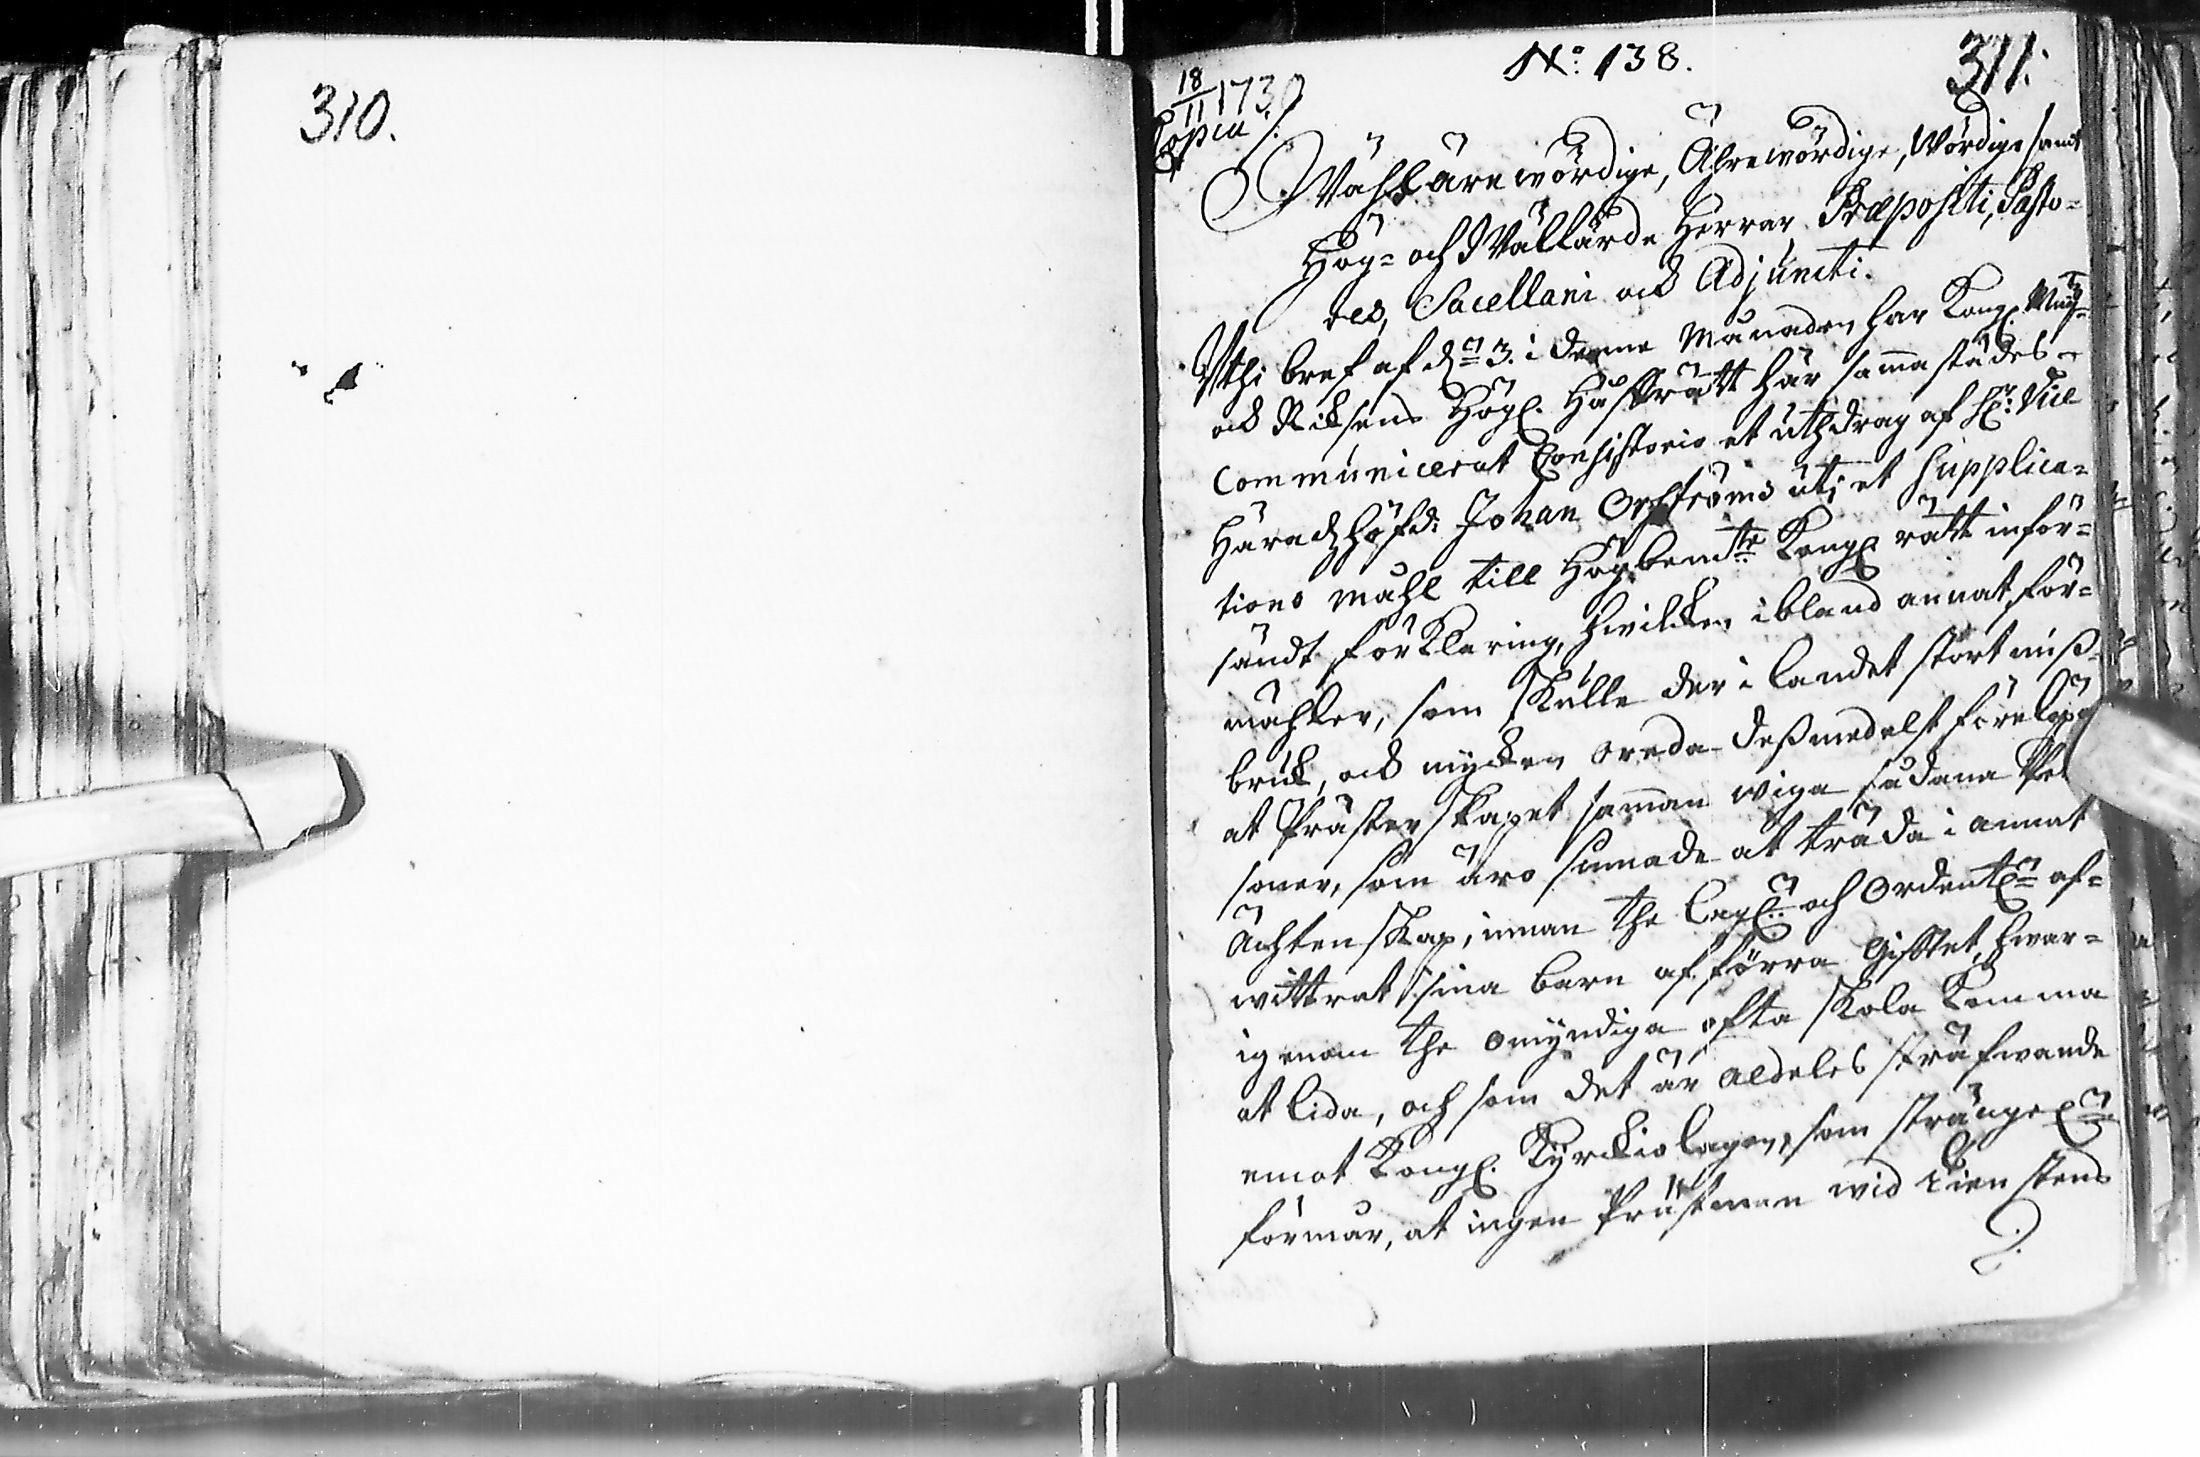 310.
N:o 138.
311.
18/11 1730
Copia /.
Wählärewördige, Ährewördige, Wördige samt
Hög- och Wällärde Herrar Præpositi, Pasto-
res, Sacellani och Adjuncti.
Uthi bref af d. 3. i denne Månaden har Kongl. Maij:tz
och Riksens Högl. Håffrätt här sammastädes
communicerat Consistorio et uthdrag af H:r Vice
Häradzhöfd: Johan Orstroms uti et Supplica-
tions måhl till Högbem:te Kongl rätt inför-
sändt förklaring, hwilken ibland annat, för-
mähler, som skulle der i landet stort miss-
bruk, och mycken oreda dessmedelst förelöpa
at Prästerskapet samman wiga sådana Per
soner, som äro sinnade at träda i annat
Ächtenskap, innan the lagl. och ordentl:n af-
wittrat sina barn af förra Gifftet, hwar-
igenom the omyndiga ofta skola komma
at lida, och som det är aldeles sträfwande
emot Kongl. Kyrckiolagen, som strängel:n
förmår, at ingen Prästman wid tienstens